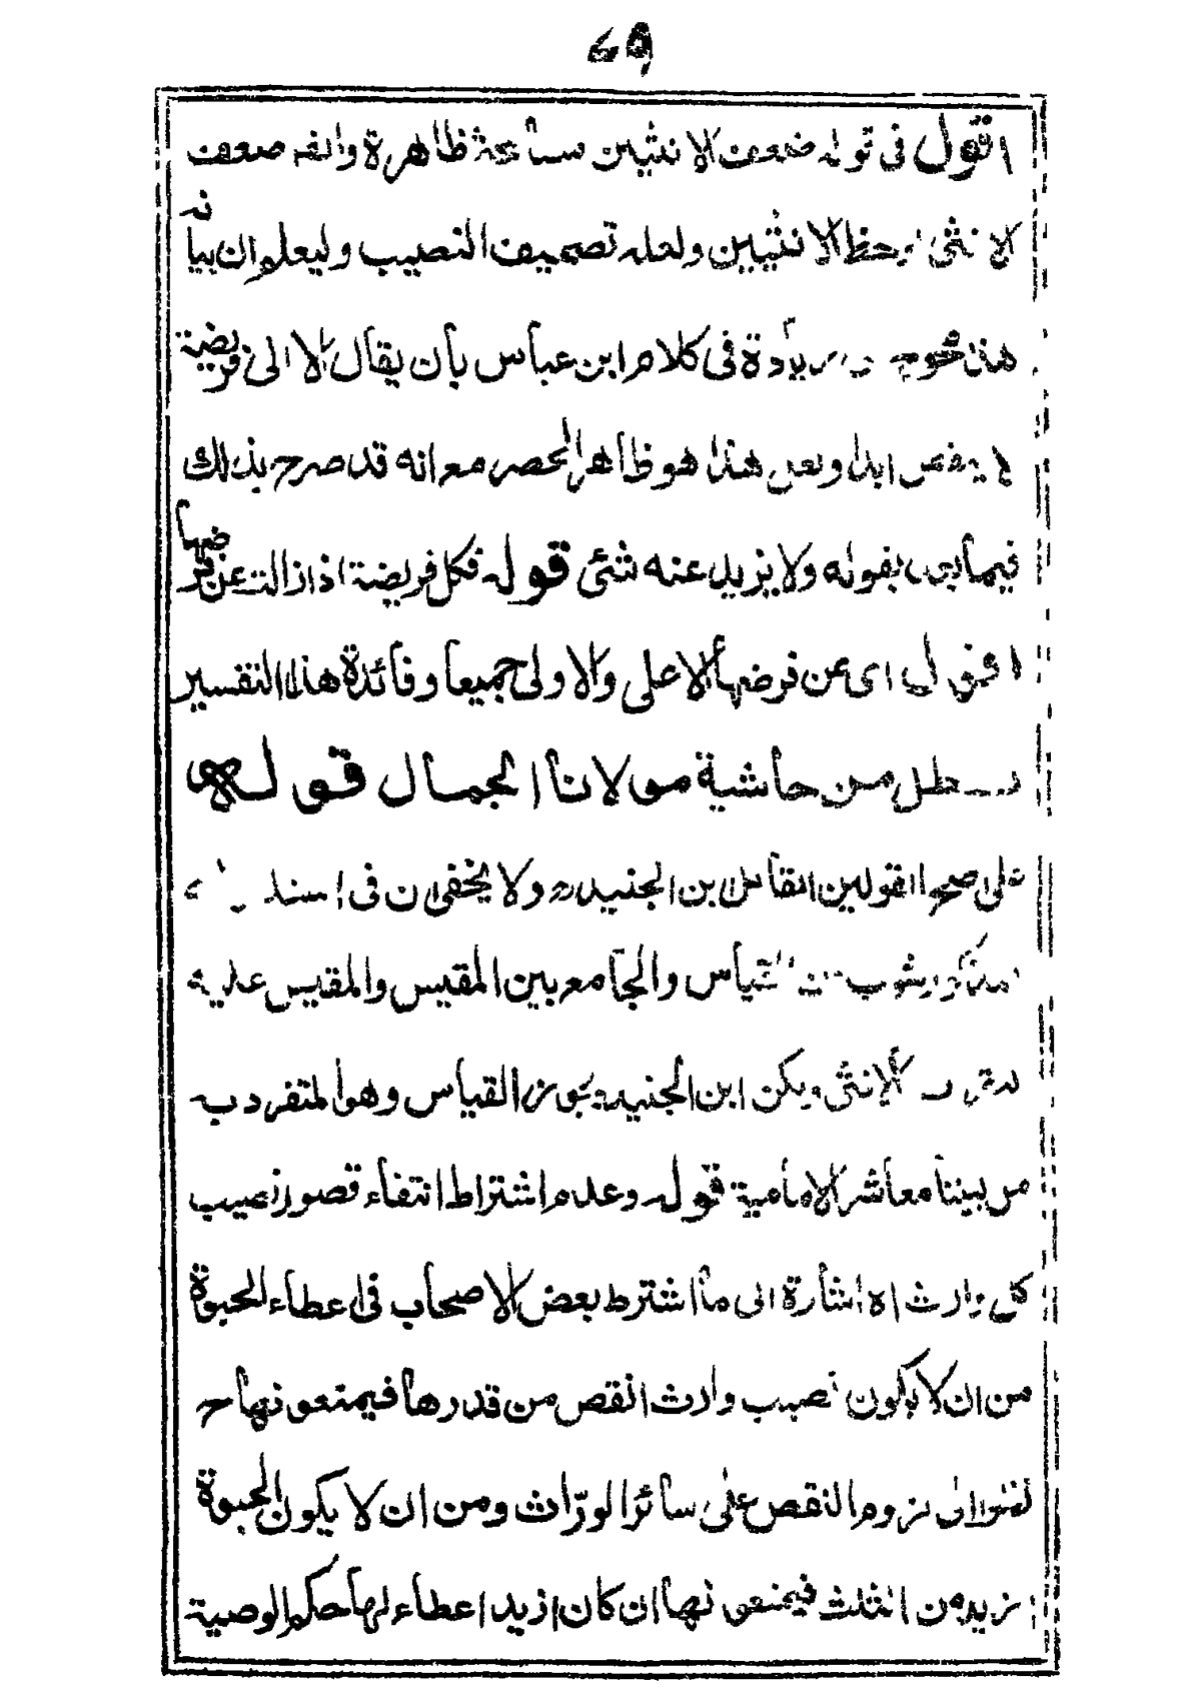 ٦٩
اقول فی قوله ضعف الانثیین مسامحة ظاهرة وانه ضعف
الانثی وحظ الانثیین ولعله تصحیف النصیب ولیعلم ان بیانه
هذا زیادة فی کلام ابن عباس بان یقال الا الی فریضة
لا ینقص ابدا هذا هو ظاهر الحصر مع انه قد صرح بذلك
فیما بقوله ولا یزید عنه شئ قوله فکل فریضة اذا زالت عن فرضها
اقول ای عن فرضها الاعلی والاولی جمیعا وفائدة هذا التفسیر
من حاشیة مولانا الجمال قوله
علی القولین القائل ابن الجنید ره ولا یخفی ان فی
القیاس والجامع بین المقیس والمقیس علیه
الانثی ولکن ابن الجنید یجوز القیاس وهو المتفرد به
من بیننا معاشر الامامیة قوله وعدم اشتراط انتفاء قصور نصیب
کل وارث اه اشارة الی ما اشترط بعض الاصحاب فی اعطاء الحبوة
من ان لا یکون نصیب وارث انقص من قدرها فیمتعونها ح
الی لزوم النقص علی سائر الورّاث ومن ان لا یکون الحبوة
ازید من الثلث فیمنعونها ان کان ازید اعطاء لها حکم الوصیة